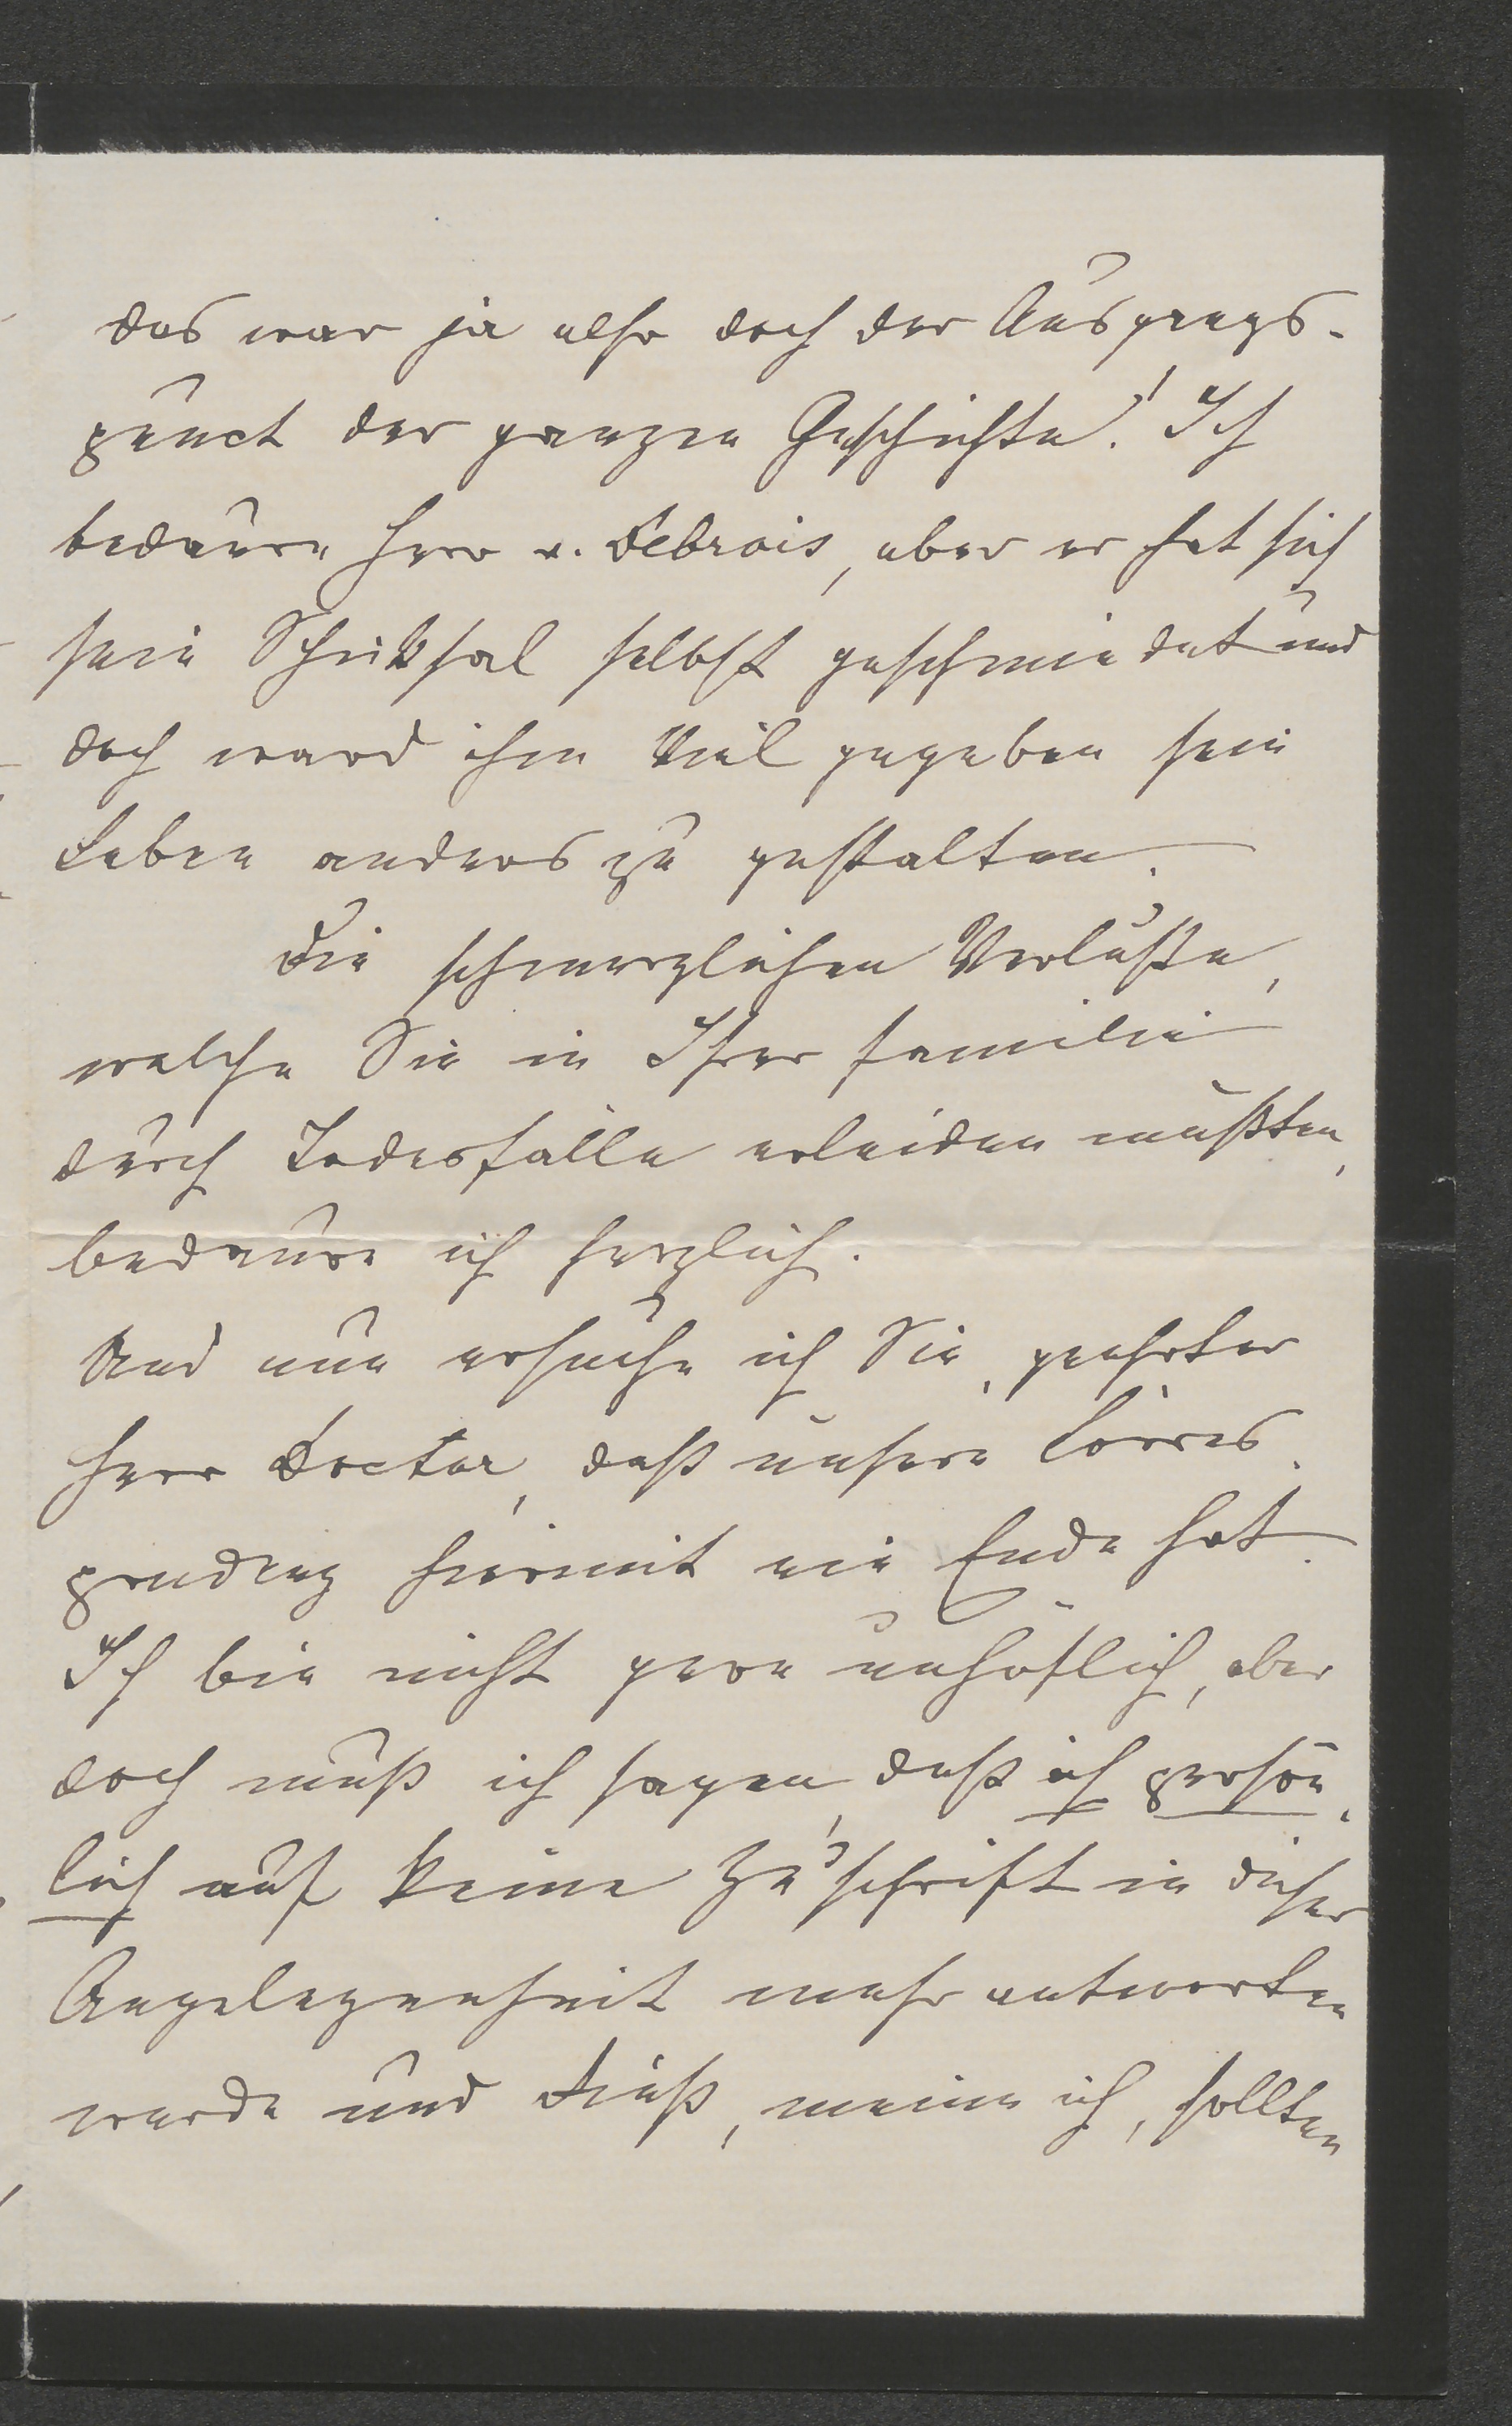 das war ja also doch der Ausgangs-
punct der ganzen Geschichte! Ich
bedaure Herr v. Debrois, aber er hat sich
sein Schiksal selbst geschmiedet und
doch ward ihm Viel gegeben sein
Leben anders zu gestalten.
Die schmerzlichen Verluste,
welche Sie in Ihrer Familie
durch Todesfälle erleiden mußten,
bedaure ich herzlich.
Und nun ersuche ich Sie, geehrter
Herr Doctor, daß unsere Corres-
pondenz hiermit ein Ende hat.
Ich bin nicht gern unhöflich, aber
doch muß ich sagen, daß ich persön-
lich auf keine Zuschrift in dieser
Angelegenheit mehr antworten
werde und Dieß, meine ich, sollten